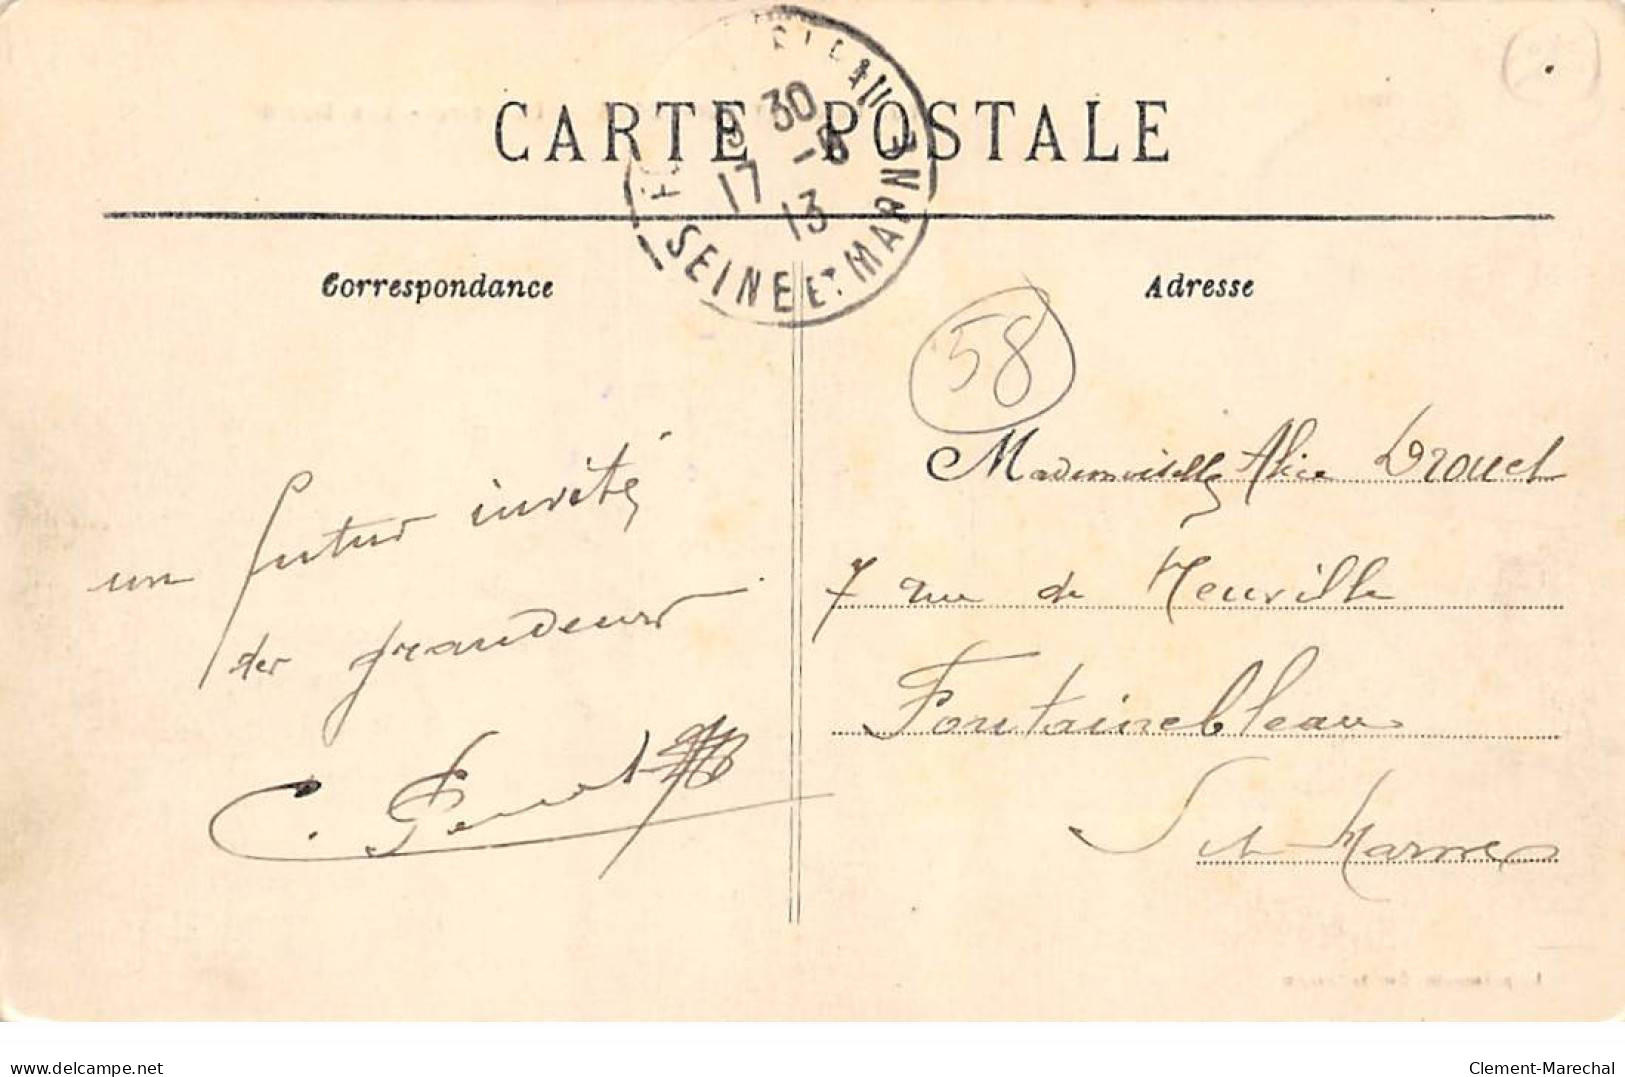 CARTE POSTALE
9 30
17 -8
13
SEINE ET MARNE
Correspondance
Adresse
58
un futur invité
des grandeurs
C.
Mademoiselle Alice Drouet
7 rue de Neuville
Fontainebleau
S et Marne
www.delcampe.net
Clement-Marechal